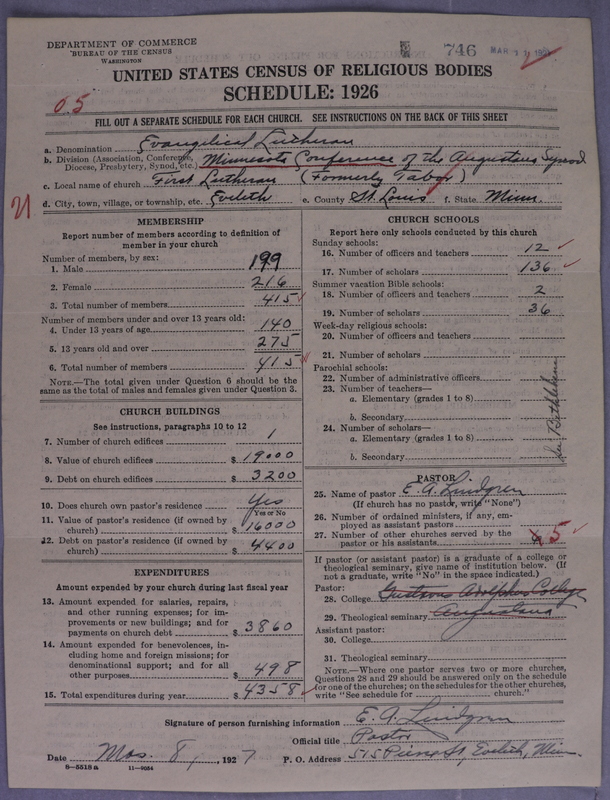 DEPARTMENT OF COMMERCE
BUREAU OF THE CENSUS
WASHINGTON
746
MAR 11 192
UNITED STATES CENSUS OF RELIGIOUS BODIES
SCHEDULE: 1926
05
FILL OUT A SEPARATE SCHEDULE FOR EACH CHURCH. SEE INSTRUCTIONS ON THE BACK OF THIS SHEET
a. Denomination Evangelical Lutheran
b. Division (Association, Conference, Diocese, Presbytery, Synod, etc.) Minnesota Conference of the Augustana Synod
c. Local name of church First Lutheran (Formerly Tabor)
21
d. City, town, village, or township, etc. Eveleth e. County St. Louis f. State Minn.
MEMBERSHIP
Report number of members according to definition of
member in your church
Number of members, by sex:
1. Male 199
2. Female 216
3. Total number of members 415
Number of members under and over 13 years old:
4. Under 13 years of age 140
5. 13 years old and over 275
6. Total number of members 415
NOTE.—The total given under Question 6 should be
the same as the total of males and females given under Question 3.
CHURCH BUILDINGS
See instructions, paragraphs 10 to 12
7. Number of church edifices 1
8. Value of church edifices $ 19000
9. Debt on church edifices $ 3200
10. Does church own pastor's residence? Yes
Yes or No
11. Value of pastor's residence (if owned by
church) $ 16000
12. Debt on pastor's residence (if owned by
church) $ 4400
EXPENDITURES
Amount expended by your church during last fiscal year
13. Amount expended for salaries, repairs,
and other running expenses; for im-
provements or new buildings; and for
payments on church debt $ 3860
14. Amount expended for benevolences, in-
cluding home and foreign missions; for
denominational support; and for all
other purposes $ 498
15. Total expenditures during year $ 4358
CHURCH SCHOOLS
Report here only schools conducted by this church
Sunday schools:
16. Number of officers and teachers 12
17. Number of scholars 136
Summer vacation Bible schools:
18. Number of officers and teachers 2
19. Number of scholars 36
Week-day religious schools:
20. Number of officers and teachers
21. Number of scholars
Parochial schools:
22. Number of administrative officers
23. Number of teachers—
a. Elementary (grades 1 to 8)
b. Secondary
24. Number of scholars—
a. Elementary (grades 1 to 8)
b. Secondary
Bethlehem
PASTOR
25. Name of pastor E. A. Lindgren
(If church has no pastor, write "None")
26. Number of ordained ministers, if any, em-
ployed as assistant pastors
27. Number of other churches served by the
pastor or his assistants 5
If pastor (or assistant pastor) is a graduate of a college or
theological seminary, give name of institution below. (If
not a graduate, write "No" in the space indicated.)
Pastor:
28. College Gustavus Adolphus College
29. Theological seminary Augustana
Assistant pastor:
30. College
31. Theological seminary
NOTE.—Where one pastor serves two or more churches,
Questions 28 and 29 should be answered only on the schedule
for one of the churches; on the schedules for the other churches,
write "See schedule for church."
Signature of person furnishing information E. A. Lindgren
Official title Pastor
Date Mar. 8, 1927 P. O. Address 515 Pierce St, Eveleth, Minn.
8-5518 a 11-9054